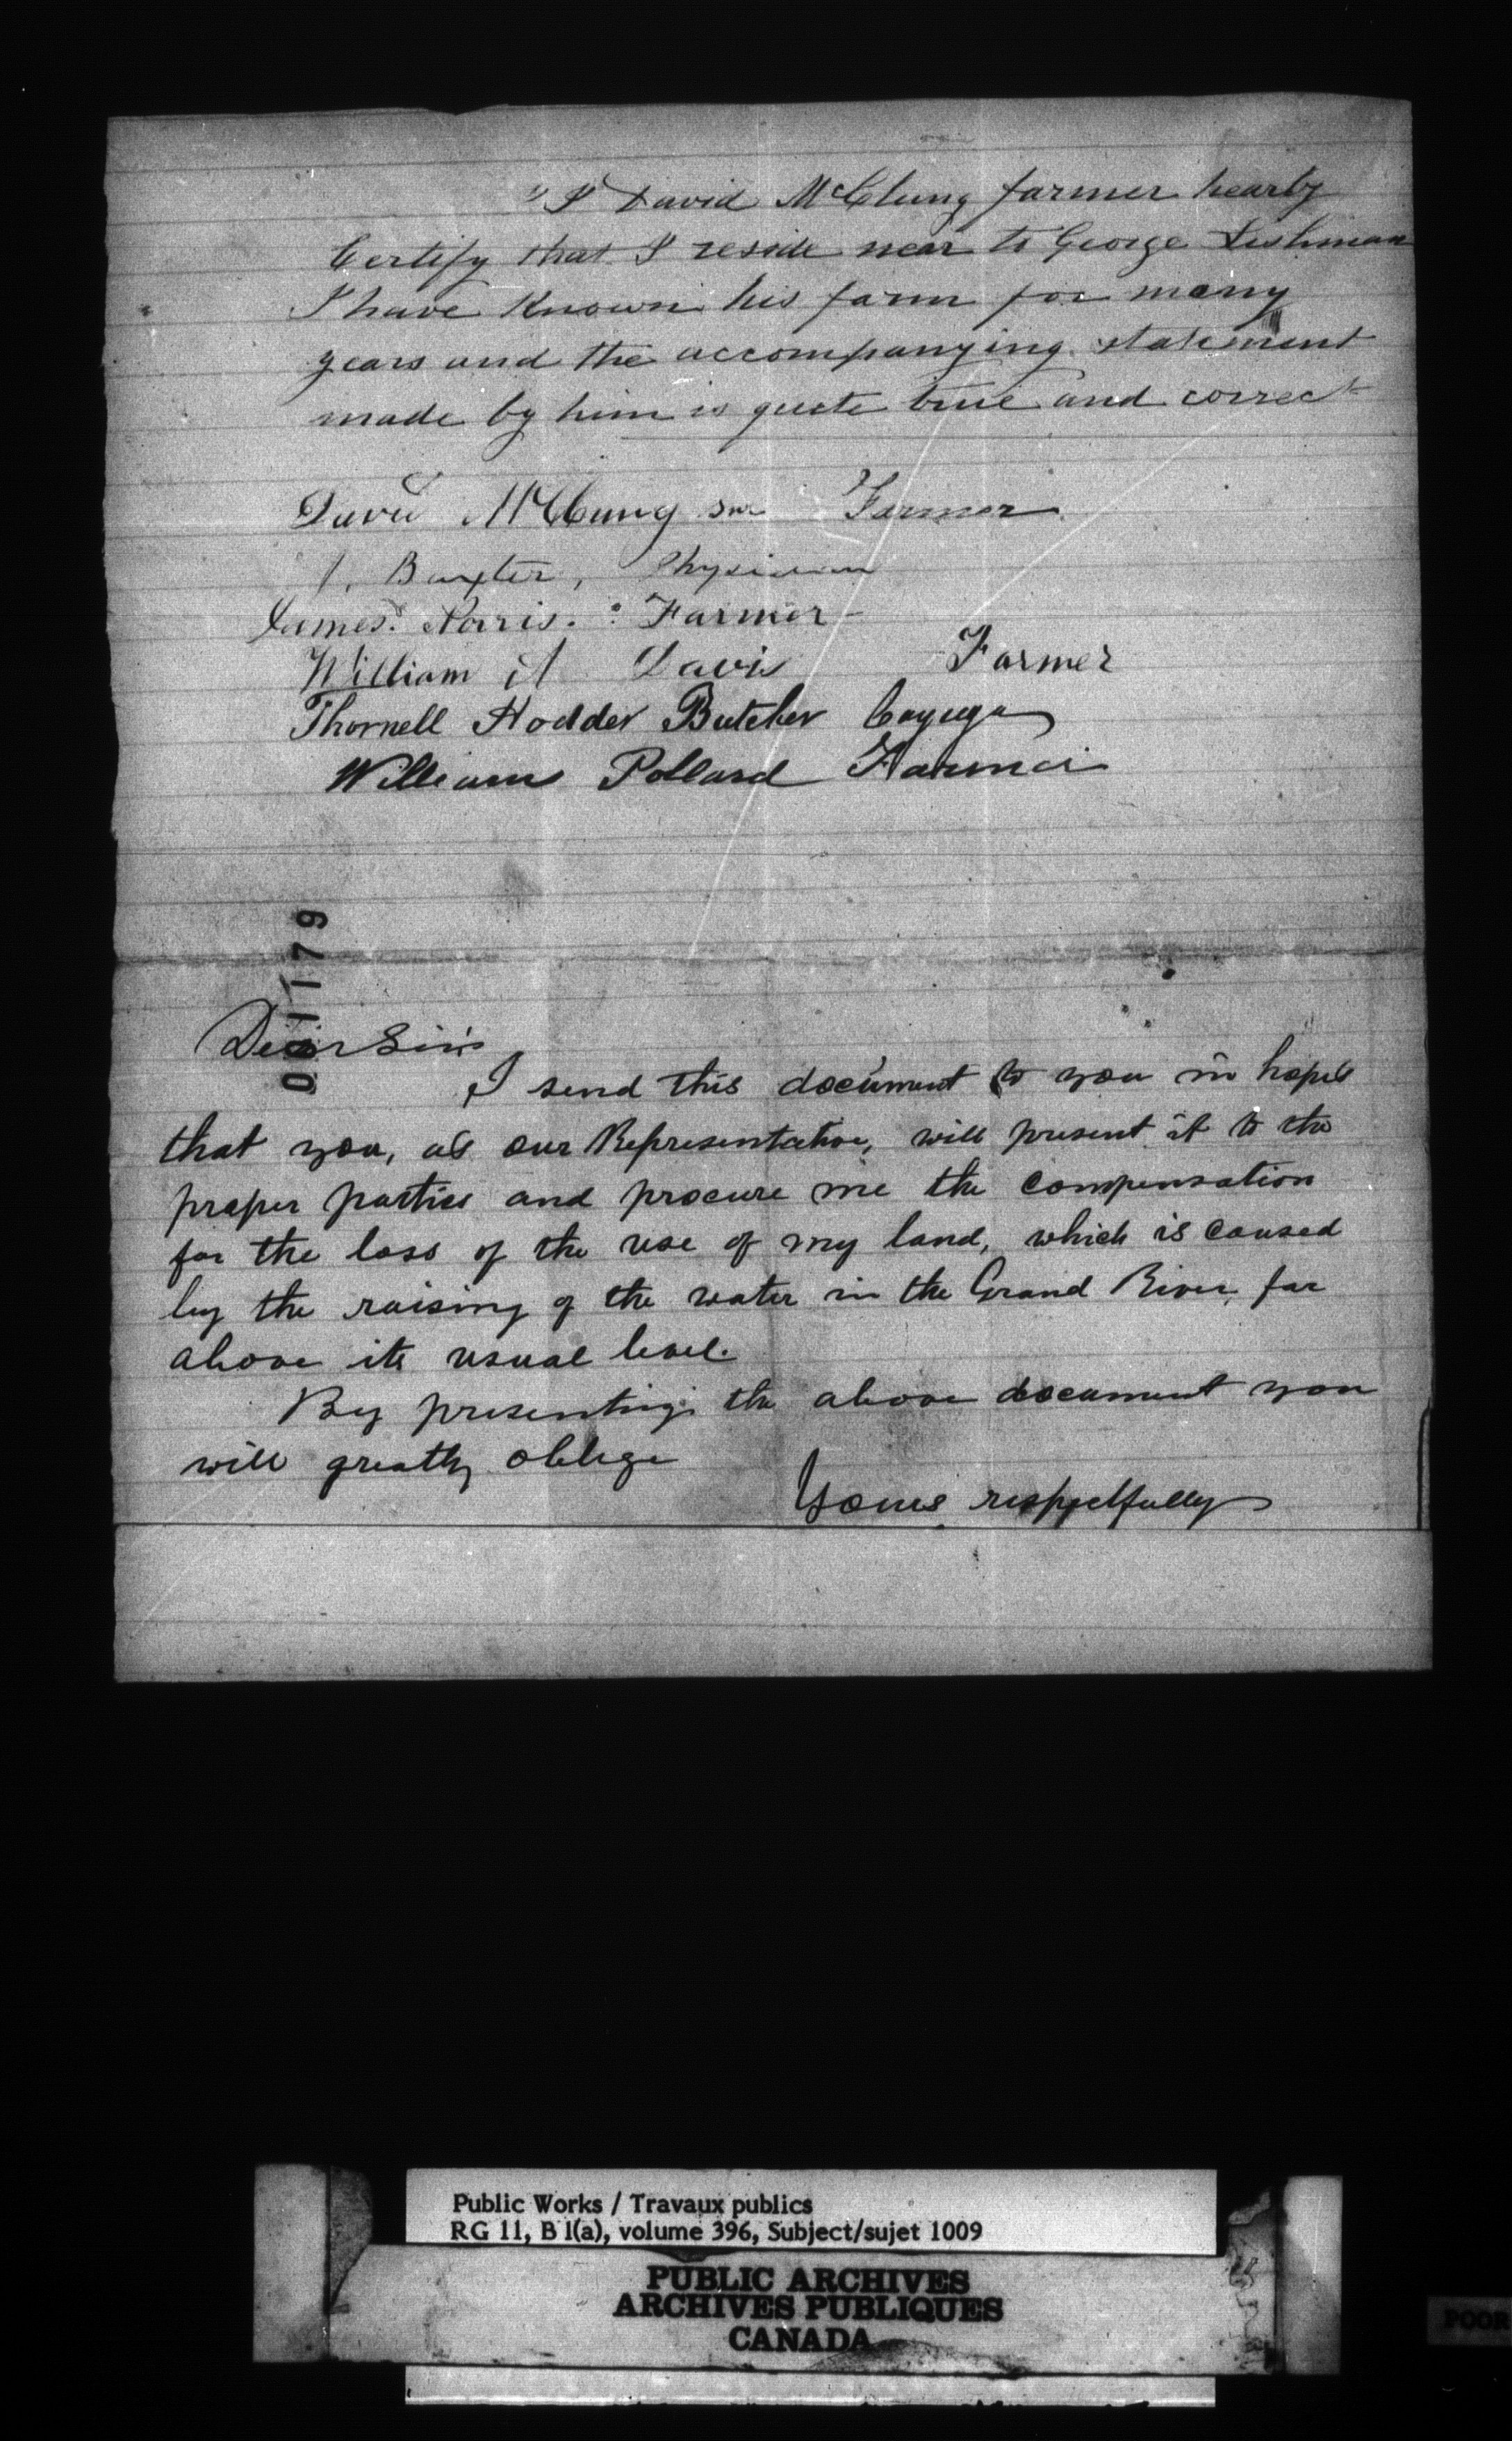 "I David McClung farmer hearby
Certify that I reside near to George Lishman
I have Known his farm for many
years and the accompanying statement
made by him is quete true and correct
David McClung snr Farmer
J. Baxter, Physician
James Norris. Farmer
William A Davis Farmer
Thornell Hodder Butcher Cayuga
William Pollard Farmer
1179
Dear Sir
I send this document to you in hopes
that you, as our Representative, will present it to the
proper parties and procure me the compensation
for the loss of the use of my land, which is caused
by the raising of the water in the Grand River far
above its usual level.
By presenting the above document you
will greatly oblige
Yours respectfully
Public Works / Travaux publics
RG 11, B 1(a), volume 396, Subject/sujet 1009
PUBLIC ARCHIVES
ARCHIVES PUBLIQUES
CANADA
POOR